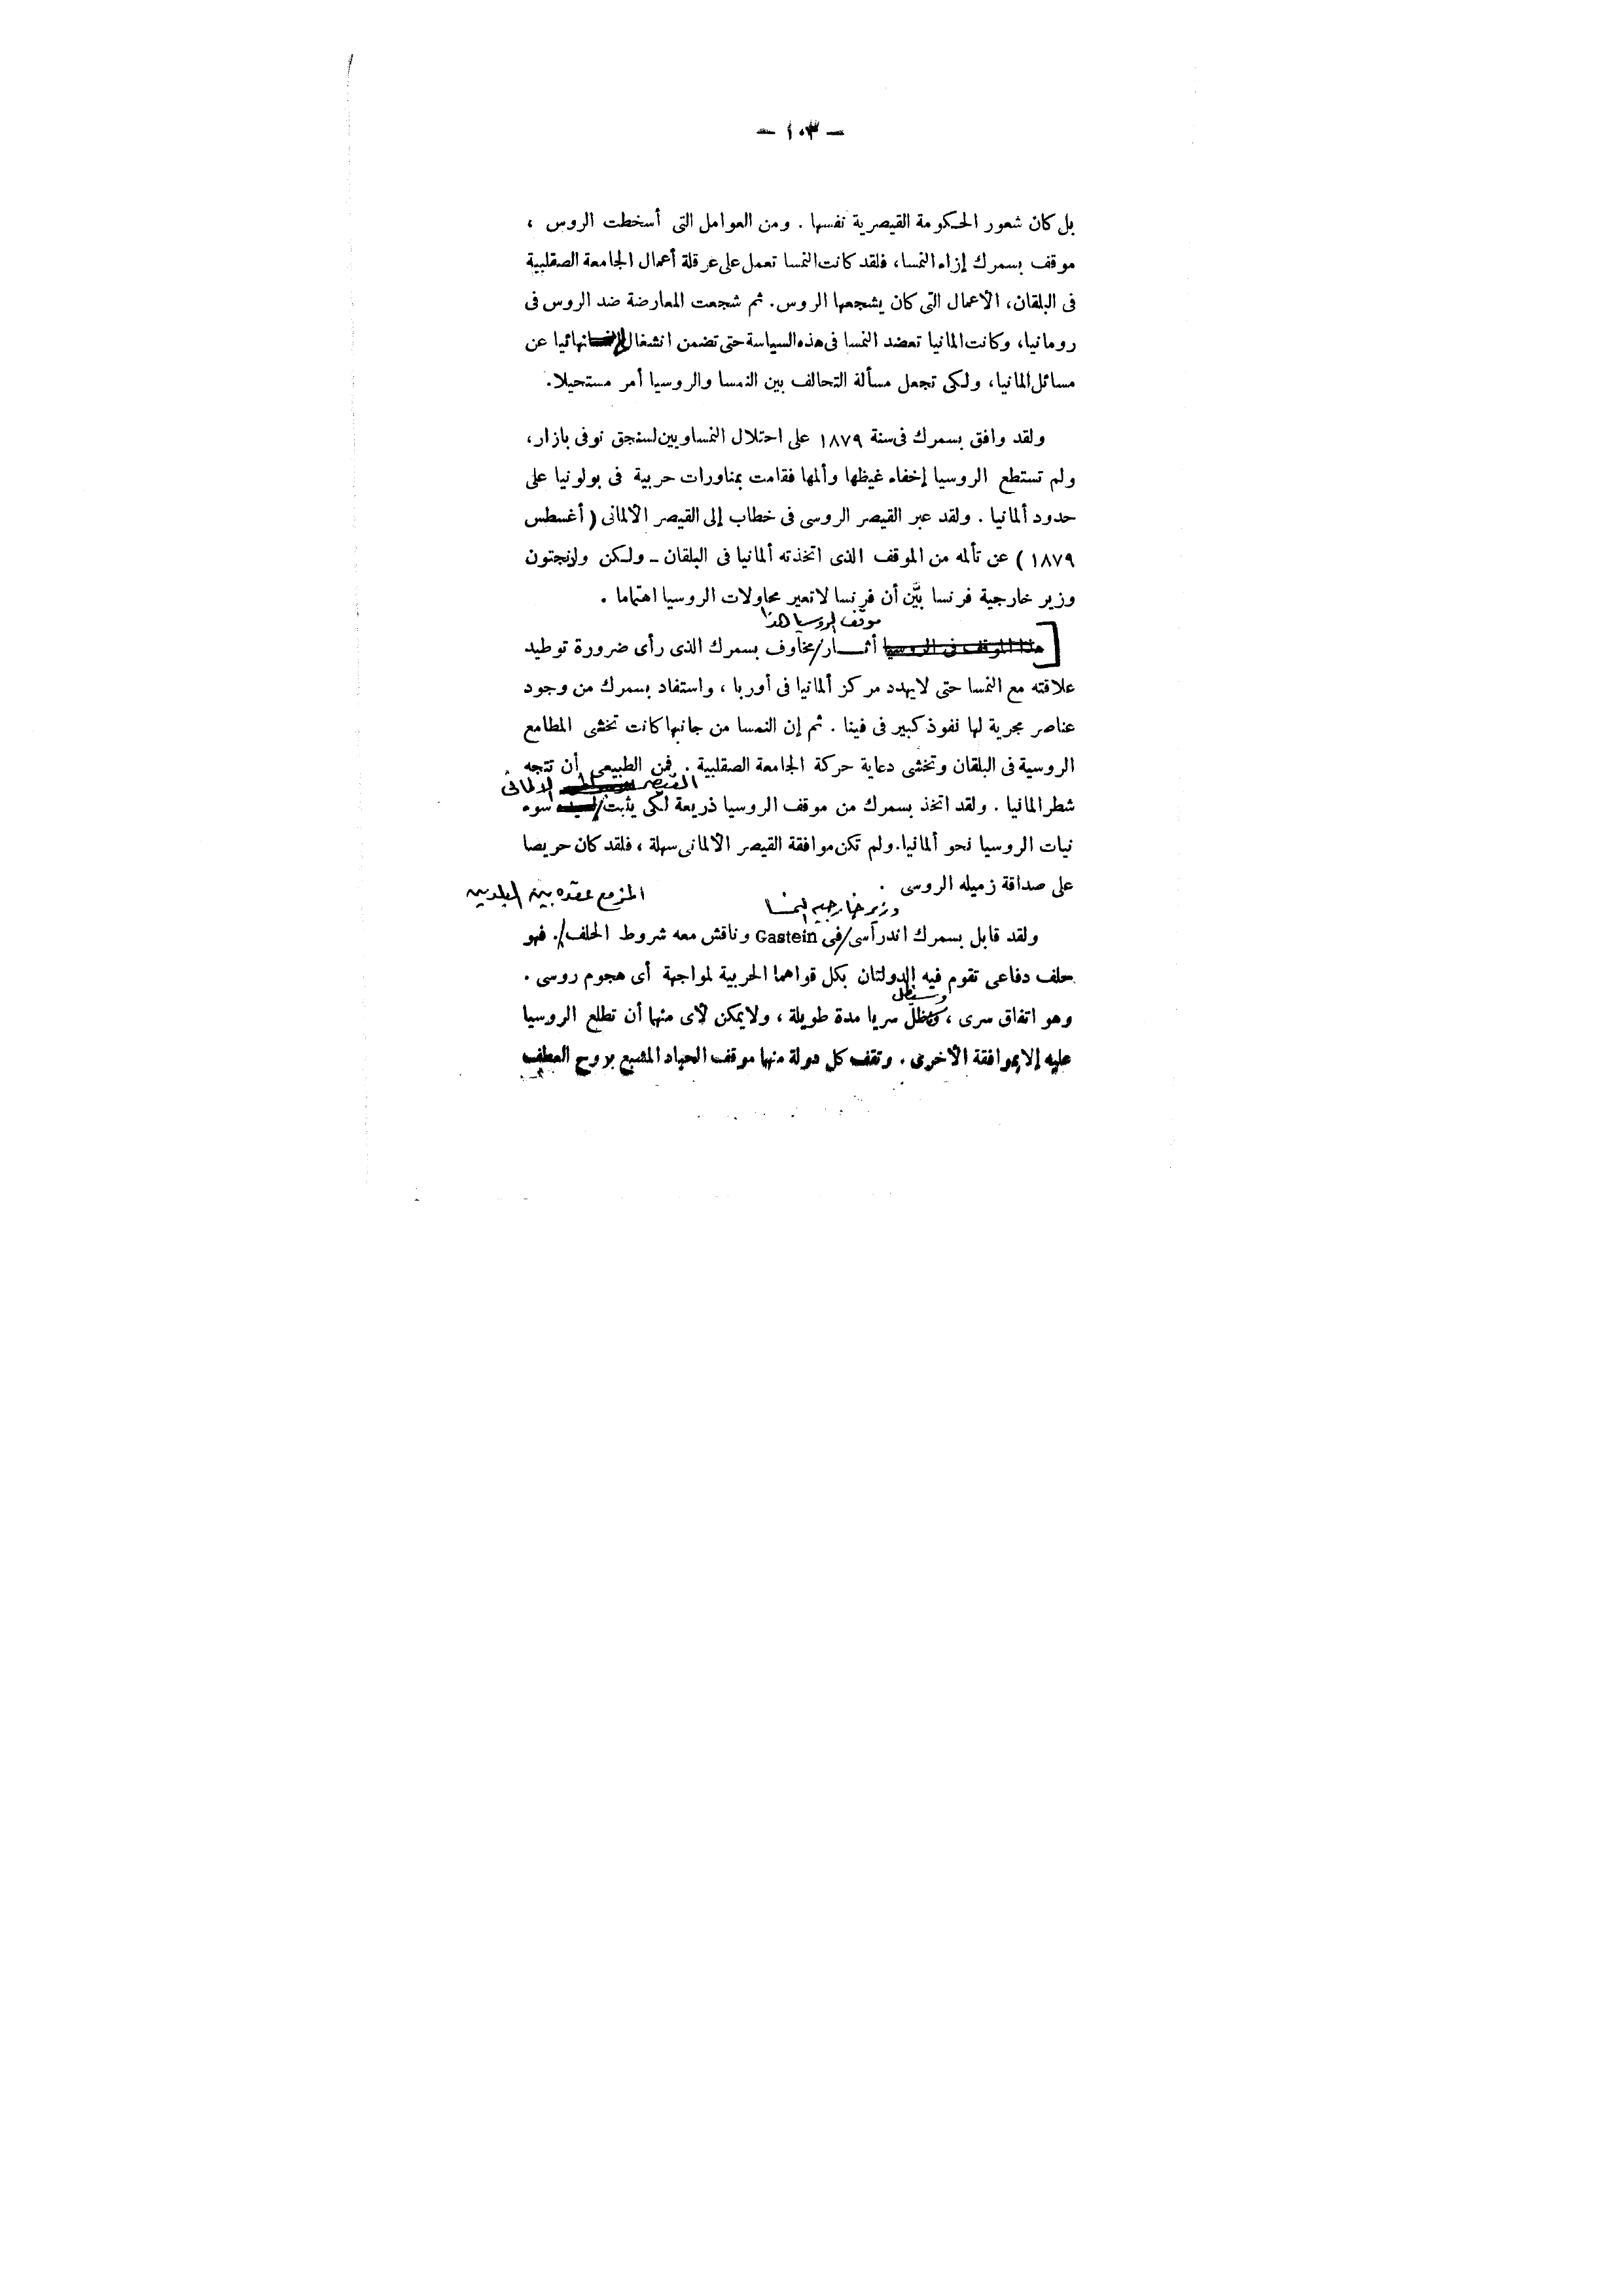 — ١٠٣ —
بل كان شعور الحكومة القيصرية نفسها . ومن العوامل التى أسخطت الروس ،
موقف بسمرك إزاء النمسا، فلقد كانت النمسا تعمل على عرقلة أعمال الجامعة الصقلبية
فى البلقان، الأعمال التى كان يشجعها الروس. ثم شجعت المعارضة ضد الروس فى
رومانيا، وكانت المانيا تعضد النمسا فى هذه السياسة حتى تضمن انشغالها نهائيا عن
مسائل المانيا، ولكى تجعل مسألة التحالف بين النمسا والروسيا أمر مستحيلا.
ولقد وافق بسمرك فى سنة ١٨٧٩ على احتلال النمساويين لسنجق نوفى بازار،
ولم تستطع الروسيا إخفاء غيظها وألمها فقامت بمناورات حربية فى بولونيا على
حدود ألمانيا . ولقد عبر القيصر الروسى فى خطاب إلى القيصر الألمانى ( أغسطس
١٨٧٩ ) عن تألمه من الموقف الذى اتخذته ألمانيا فى البلقان ـ ولكن وادنجتون
وزير خارجية فرنسا بيَّن أن فرنسا لاتعير محاولات الروسيا اهتماما .
موقف الروسيا هذا
[ هذا الموقف فى الروسيا أثـــار/مخاوف بسمرك الذى رأى ضرورة توطيد
علاقته مع النمسا حتى لايهدد مركز ألمانيا فى أوربا ، واستفاد بسمرك من وجود
عناصر مجرية لها نفوذ كبير فى فينا . ثم إن النمسا من جانبها كانت تخشى المطامع
الروسية فى البلقان وتخشى دعاية حركة الجامعة الصقلبية . فمن الطبيعى أن تتجه
القيصر الألمانى
شطر المانيا . ولقد اتخذ بسمرك من موقف الروسيا ذريعة لكى يثبت/لسيده سوء
نيات الروسيا نحو ألمانيا. ولم تكن موافقة القيصر الألمانى سهلة ، فلقد كان حريصا
على صداقة زميله الروسى .
وزير خارجية النمسا المزمع عقده بين البلدين
ولقد قابل بسمرك اندراسى/فى Gastein وناقش معه شروط الحلف/. فهو
حلف دفاعى تقوم فيه الدولتان بكل قواهما الحربية لمواجهة أى هجوم روسى .
وسيظل
وهو اتفاق سرى ، ويظل سريا مدة طويلة ، ولايمكن لأى منها أن تطلع الروسيا
عليه إلا بموافقة الأخرى . وتقف كل دولة منها موقف الحياد المشبع بروح العطف